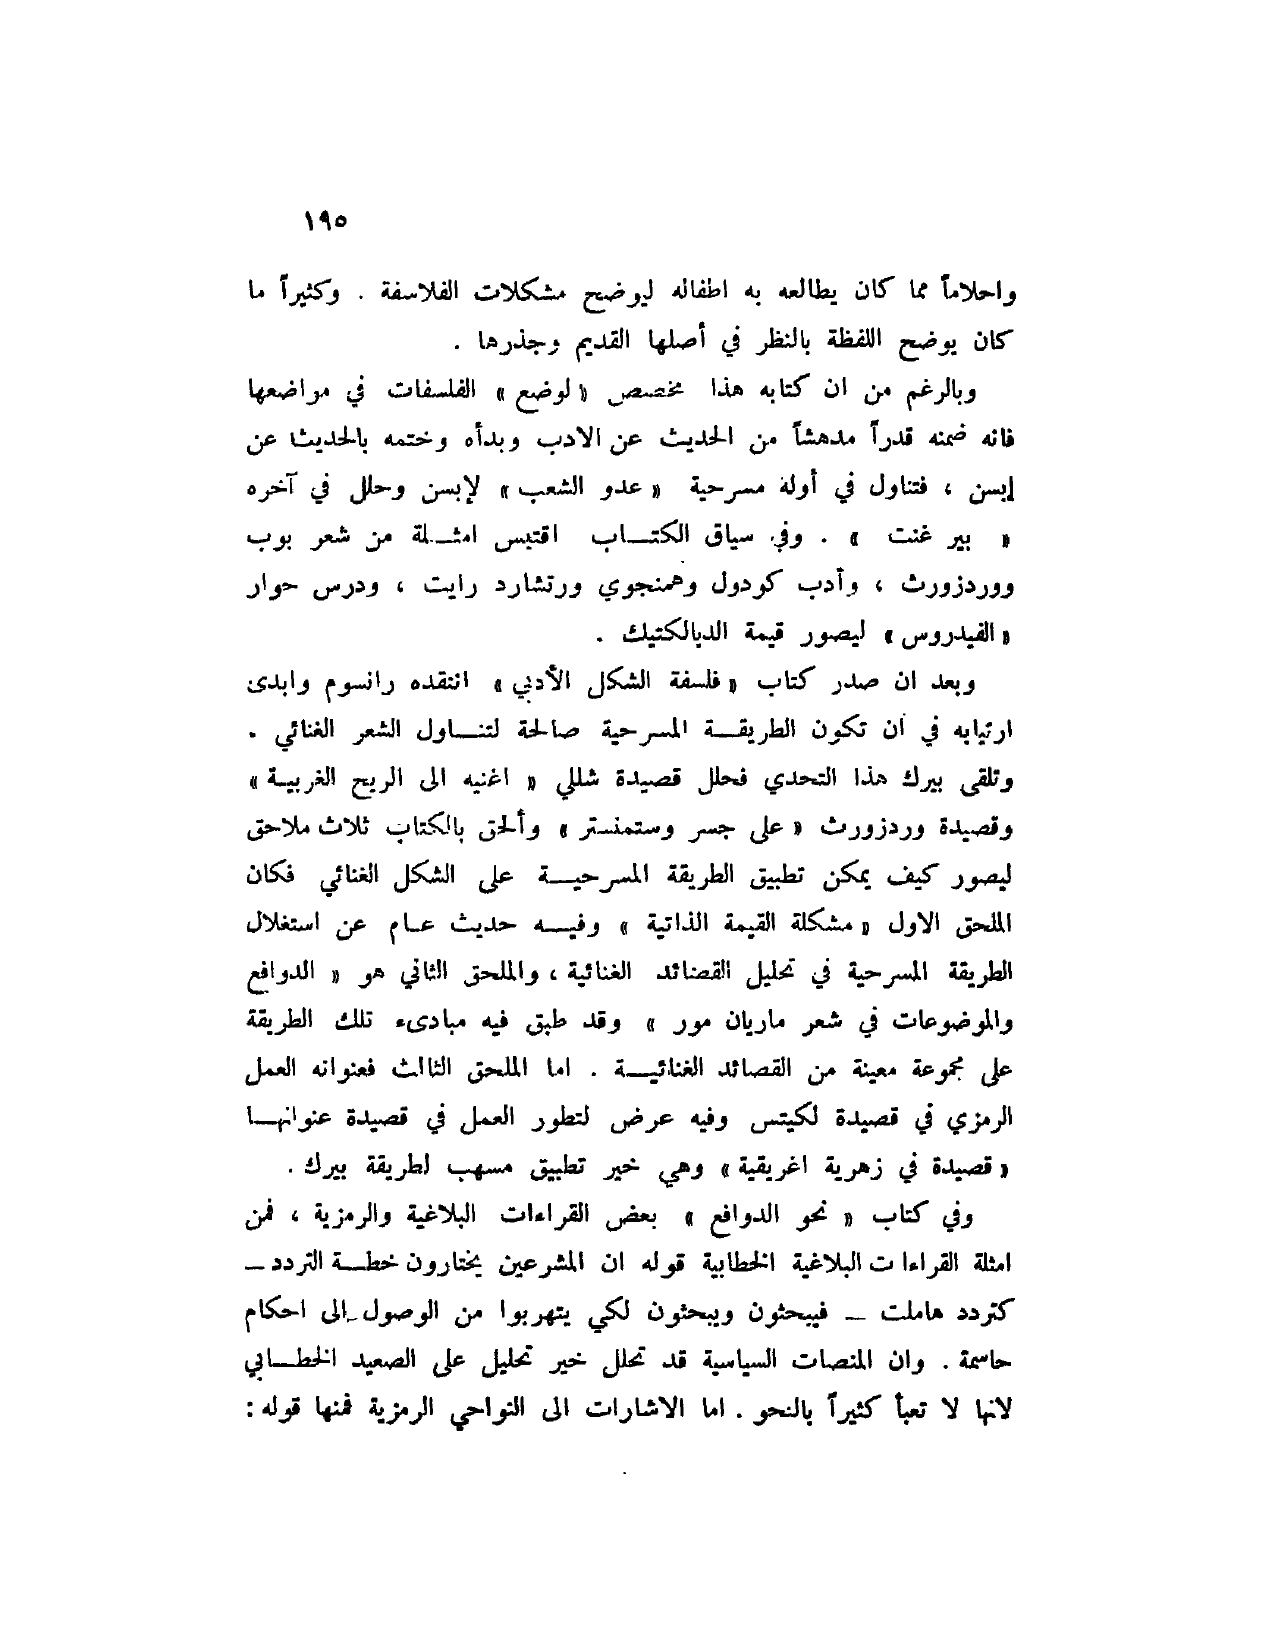 ١٩٥
واحلاماً مما كان يطالعه به اطفاله ليوضح مشكلات الفلاسفة . وكثيراً ما
كان يوضح اللفظة بالنظر في أصلها القديم وجذرها .
وبالرغم من ان كتابه هذا مخصص « لوضع » الفلسفات في مواضعها
فانه ضمنه قدراً مدهشاً من الحديث عن الادب وبدأه وختمه بالحديث عن
إبسن ، فتناول في أوله مسرحية « عدو الشعب » لإبسن وحلل في آخره
« بير غنت » . وفي سياق الكتـــاب اقتبس امثـــلة من شعر بوب
ووردزورث ، وأدب كودول وهمنجوي ورتشارد رايت ، ودرس حوار
« الفيدروس » ليصور قيمة الديالكتيك .
وبعد ان صدر كتاب « فلسفة الشكل الأدبي » انتقده رانسوم وابدى
ارتيابه في ان تكون الطريقـــة المسرحية صالحة لتنـــاول الشعر الغنائي .
وتلقى بيرك هذا التحدي فحلل قصيدة شللي « اغنيه الى الريح الغربيـــة »
وقصيدة وردزورث « على جسر وستمنستر » وألحق بالكتاب ثلاث ملاحق
ليصور كيف يمكن تطبيق الطريقة المسرحيـــة على الشكل الغنائي فكان
الملحق الاول « مشكلة القيمة الذاتية » وفيـــه حديث عـام عن استغلال
الطريقة المسرحية في تحليل القصائد الغنائية ، والملحق الثاني هو « الدوافع
والموضوعات في شعر ماريان مور » وقد طبق فيه مبادىء تلك الطريقة
على مجموعة معينة من القصائد الغنائيـــة . اما الملحق الثالث فعنوانه العمل
الرمزي في قصيدة لكيتس وفيه عرض لتطور العمل في قصيدة عنوانهـــا
« قصيدة في زهرية اغريقية » وهي خير تطبيق مسهب لطريقة بيرك .
وفي كتاب « نحو الدوافع » بعض القراءات البلاغية والرمزية ، فمن
امثلة القراءات البلاغية الخطابية قوله ان المشرعين يختارون خطـــة التردد –
كتردد هاملت – فيبحثون ويبحثون لكي يتهربوا من الوصول الى احكام
حاسمة . وان المنصات السياسية قد تحلل خير تحليل على الصعيد الخطـــابي
لانها لا تعبأ كثيراً بالنحو . اما الاشارات الى النواحي الرمزية فمنها قوله :